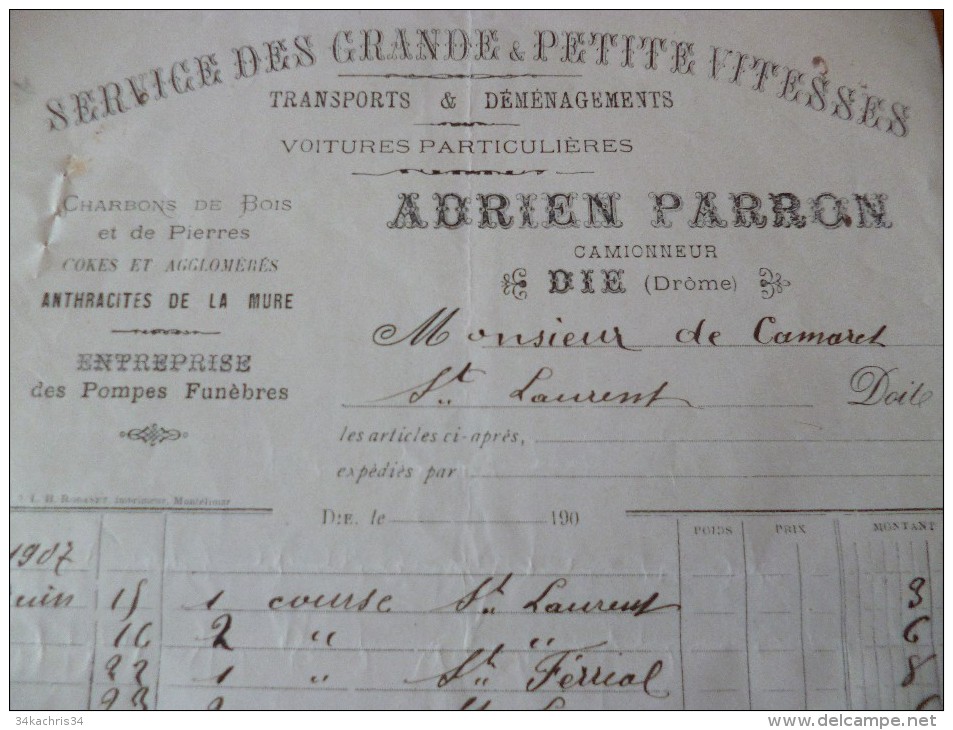 SERVICE DES GRANDE & PETITE VITESSES
TRANSPORTS & DÉMÉNAGEMENTS
VOITURES PARTICULIÈRES
CHARBONS DE BOIS
et de Pierres
COKES ET AGGLOMÉRÉS
ANTHRACITES DE LA MURE
ENTREPRISE
des Pompes Funèbres
ADRIEN PARRON
CAMIONNEUR
DIE (Drôme)
Monsieur de Camaret
St. Laurent Doit
les articles ci-après,
expédiés par
Imprimeur, Montélimar
DIE, le 190
POIDS PRIX MONTANT
1907
uin 15 1 course St. Laurent 3
16 2 " " 6
22 1 " St. Ferréol 8
23
34kachris34 www.delcampe.net